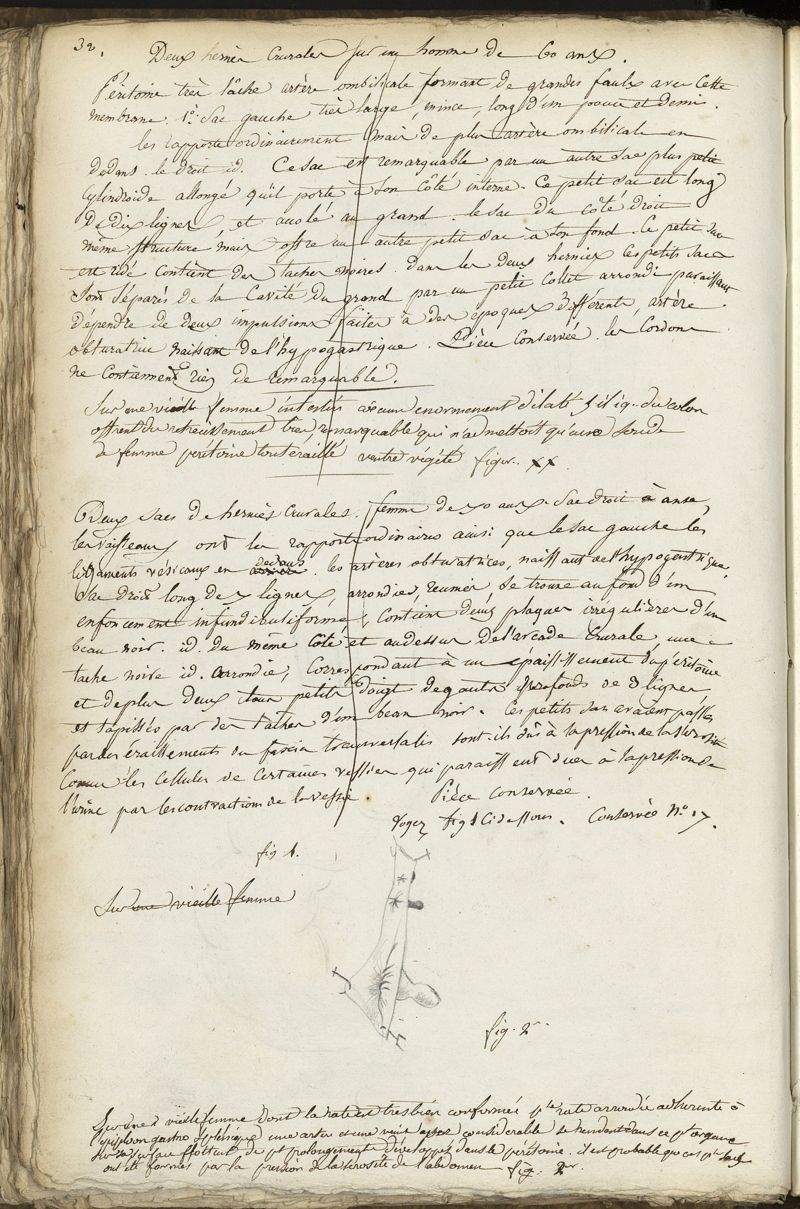 32.
Deux hernies Crurales sur un homme de 60 ans.
Péritoine très lâche artère ombilicale formant de grandes faulx avec cette
membrane. 1º. Sac gauche très large, mince, long d'un pouce et demi.
les rapports ordinairement mais de plus artère ombilicale en
dedans. le droit id. Ce sac est remarquable par un autre sac plus petit
Cylindroide allongé qu'il porte à son côté interne. Ce petit sac est long
De dix lignes, et accolé au grand. le sac du côté droit
même structure mais offre un autre petit sac à son fond. Ce petit sac
est ridé contient des taches noires. dans les deux hernies les petits sacs
sont séparés de la Cavité du grand par un petit collet arrondi paraissant
dépendre de deux impulsions faites à des époques différentes, artère
obturatrice naissant de l'hypogastrique. Pièce Conservée. les Cordons
ne contiennent rien de remarquable.
Sur une vieille femme intestin coecum enormement dilaté S iliq. du colon
offrent du retrecissement bien remarquable qui n'admettoit qu'une sonde
de femme peritoine tout éraillé ventre végété figur. xx
Deux sacs de hernies Crurales. femme de 70 ans. Sac droit à anse,
les vaisseaux ont les rapports ordinaires ainsi que le sac gauche les
ligaments vésicaux en dedans. les artères obturatrices, naissant de l'hypogastrique,
Sac droit long de 7 lignes, arrondie, reunies, se trouve au fond d'un
enfoncement infundibuliforme, contient deux plaques irrégulières d'un
beau noir. id. du même côté et audessus de l'arcade Crurale une
tache noire id. arrondie, Correspondant à un épaississement du péritoine
et deplus deux tous petits doigt de gants profonds de 3 lignes
et tapissés par des taches d'un beau noir. Ces petits sacs avaient passés
par des éraillements du fascia transversalis sont-ils dûs à la pression de la sérosité
Comme les cellules de certaines vessies qui paraissent dues à la pression de
l'urine par les contractions de la vessie. Pièce conservée.
Voyez fig 1 Ci dessous. Conservée Nº 17.
fig 1.
Sur une vieille femme
fig. 2
Sur une vieille femme dont la rate est tres bien conformée pte rate arrondie adherente à
epiploon gastro splénique une artère et une veine assez considerable se rendent dans ce pt organe
Sur sa surface flottent de pt prolongements développés dans le péritoine. il est probable que ces pt sacs
ont été formés par la pression de la sérosité de l'abdomen fig. 2